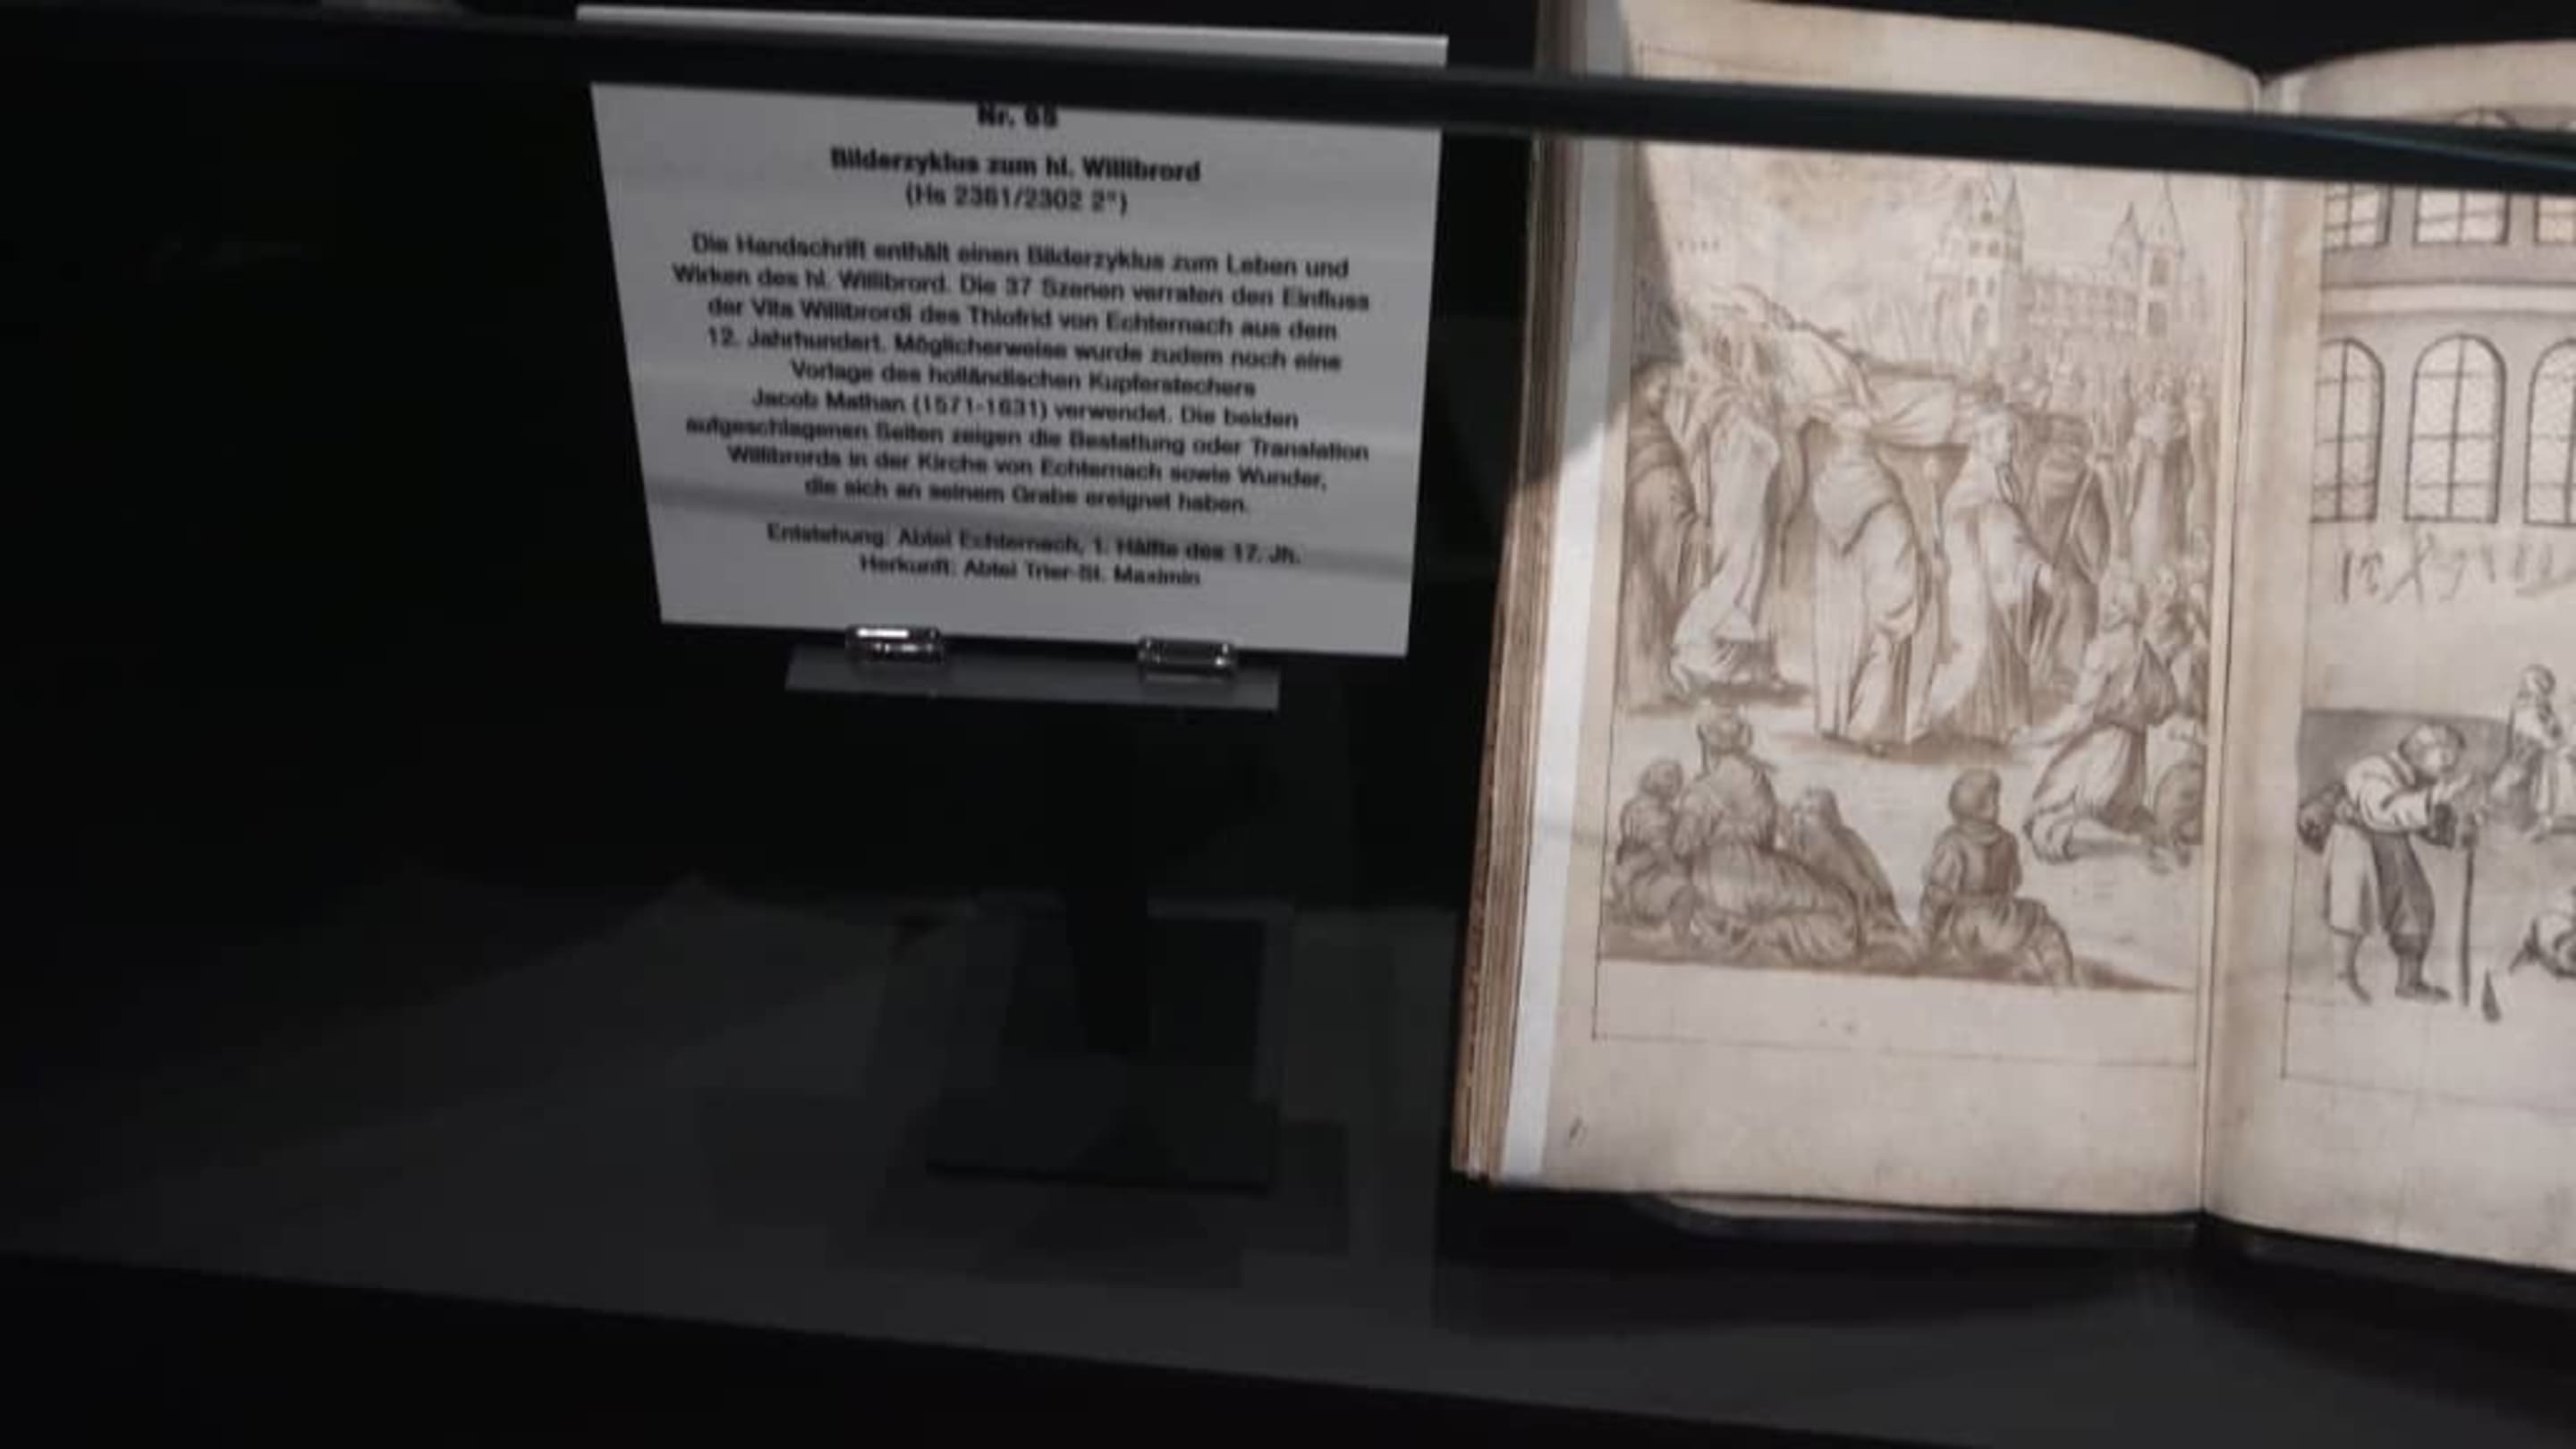 Nr. 65
Bilderzyklus zum hl. Willibrord
(Hs 2361/2302 2°)
Die Handschrift enthält einen Bilderzyklus zum Leben und
Wirken des hl. Willibrord. Die 37 Szenen verraten den Einfluss
der Vita Willibrordi des Thiofrid von Echternach aus dem
12. Jahrhundert. Möglicherweise wurde zudem noch eine
Vorlage des holländischen Kupferstechers
Jacob Mathan (1571-1631) verwendet. Die beiden
aufgeschlagenen Seiten zeigen die Bestattung oder Translation
Willibrords in der Kirche von Echternach sowie Wunder,
die sich an seinem Grabe ereignet haben.
Entstehung: Abtei Echternach, 1. Hälfte des 17. Jh.
Herkunft: Abtei Trier-St. Maximin